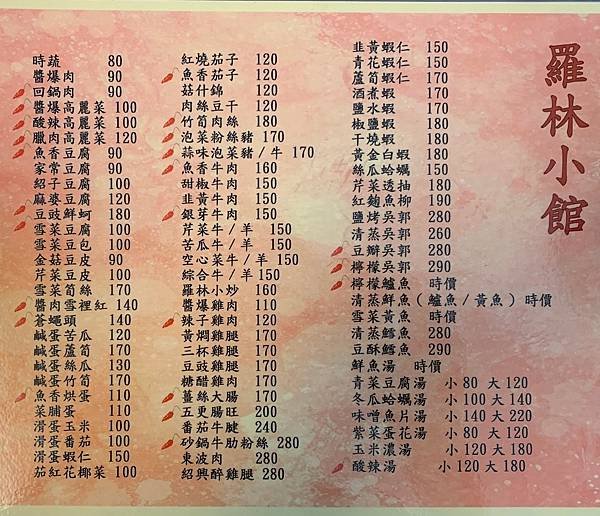 羅林小館
時蔬 80
醬爆肉 90
回鍋肉 90
醬爆高麗菜 100
酸辣高麗菜 100
臘肉高麗菜 120
魚香豆腐 90
家常豆腐 90
紹子豆腐 100
麻婆豆腐 120
豆豉鮮蚵 180
雪菜豆腐 100
雪菜豆包 100
金菇豆皮 90
芹菜豆皮 100
雪菜筍絲 170
醬肉雪裡紅 140
蒼蠅頭 140
鹹蛋苦瓜 120
鹹蛋蘆筍 170
鹹蛋絲瓜 130
鹹蛋竹筍 170
魚香烘蛋 110
菜脯蛋 110
滑蛋玉米 100
滑蛋番茄 100
滑蛋蝦仁 150
茄紅花椰菜 100
紅燒茄子 120
魚香茄子 120
菇什錦 120
肉絲豆干 120
竹筍肉絲 180
泡菜粉絲豬 170
蒜味泡菜豬/牛 170
魚香牛肉 160
甜椒牛肉 150
韭黃牛肉 150
銀芽牛肉 150
芹菜牛/羊 150
苦瓜牛/羊 150
空心菜牛/羊 150
綜合牛/羊 150
羅林小炒 160
醬爆雞肉 110
辣子雞肉 120
黃燜雞腿 170
三杯雞腿 170
豆豉雞腿 170
糖醋雞肉 170
薑絲大腸 170
五更腸旺 200
番茄牛腱 240
砂鍋牛肋粉絲 280
東坡肉 280
紹興醉雞腿 280
韭黃蝦仁 150
青花蝦仁 150
蘆筍蝦仁 170
酒煮蝦 170
鹽水蝦 180
椒鹽蝦 180
干燒蝦 180
黃金白蝦 180
絲瓜蛤蠣 150
芹菜透抽 180
紅麴魚柳 190
鹽烤吳郭 280
清蒸吳郭 260
豆瓣吳郭 280
檸檬吳郭 290
檸檬鱸魚 時價
清蒸鮮魚(鱸魚/黃魚)時價
雪菜黃魚 時價
清蒸鱈魚 280
豆酥鱈魚 290
鮮魚湯 時價
青菜豆腐湯 小80 大120
冬瓜蛤蠣湯 小100 大140
味噌魚片湯 小140 大220
紫菜蛋花湯 小80 大120
玉米濃湯 小120 大180
酸辣湯 小120 大180